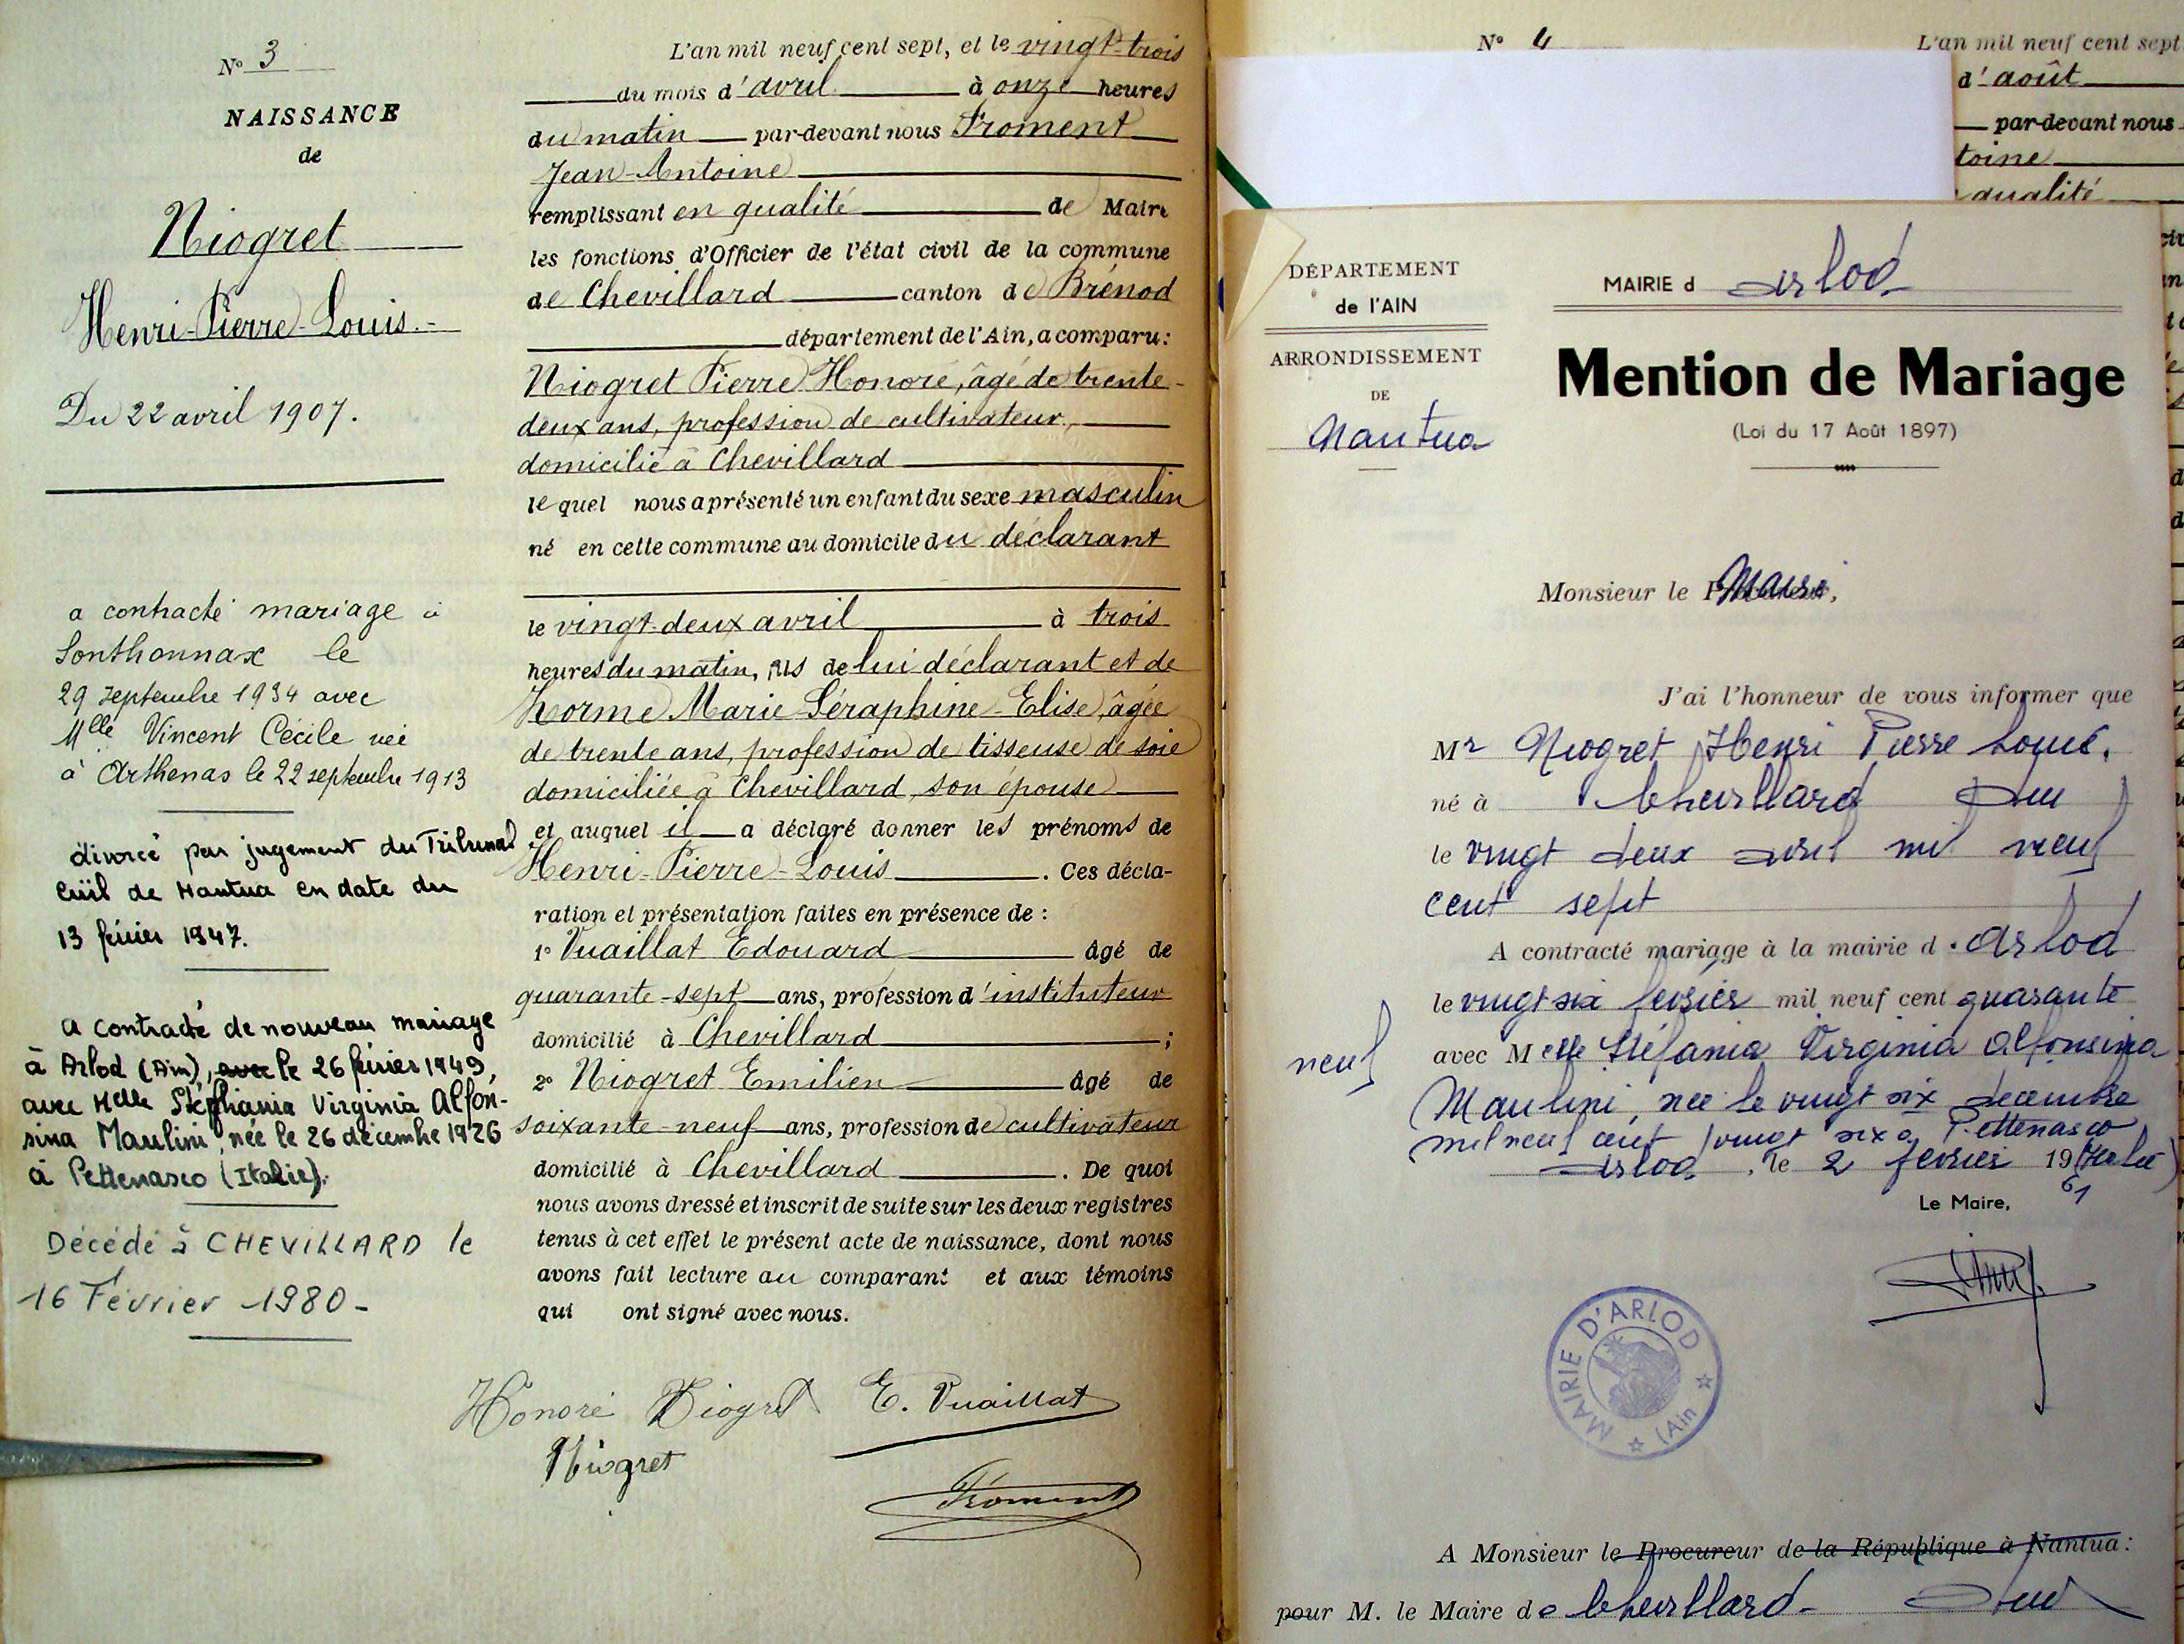 N° 3
NAISSANCE
de
Niogret
Henri-Pierre-Louis.-
Du 22 avril 1907.
a contracté mariage à
Sonthonnax le
29 septembre 1934 avec
Mlle Vincent Cécile née
à Arthenas le 22 septembre 1913
divorcé par jugement du Tribunal
Civil de Nantua en date du
13 février 1947.
a contracté de nouveau mariage
à Arlod (Ain), avec le 26 février 1949,
avec Melle Stéphania Virginia Alfon-
sina Maulini, née le 26 décembre 1926
à Pettenasco (Italie).
Décédé à CHEVILLARD le
16 Février 1980-
L'an mil neuf cent sept, et le vingt-trois
du mois d'avril à onze heures
du matin par-devant nous Froment
Jean-Antoine
remplissant en qualité de Maire
les fonctions d'Officier de l'état civil de la commune
de Chevillard canton de Brénod
département de l'Ain, a comparu:
Niogret Pierre Honoré, âgé de trente-
deux ans, profession de cultivateur,
domicilié à Chevillard
lequel nous a présenté un enfant du sexe masculin
né en cette commune au domicile du déclarant
le vingt-deux avril à trois
heures du matin, fils de lui déclarant et de
Zorme Marie-Séraphine-Elise, âgée
de trente ans, profession de tisseuse de soie
domiciliée à Chevillard, son épouse
et auquel il a déclaré donner les prénoms de
Henri-Pierre-Louis. Ces décla-
ration et présentation faites en présence de :
1° Vuaillat Edouard âgé de
quarante-sept ans, profession d'instituteur
domicilié à Chevillard ;
2° Niogret Emilien âgé de
soixante-neuf ans, profession de cultivateur
domicilié à Chevillard. De quoi
nous avons dressé et inscrit de suite sur les deux registres
tenus à cet effet le présent acte de naissance, dont nous
avons fait lecture au comparant et aux témoins
qui ont signé avec nous.
Honoré Niogret E. Vuaillat
Niogret
Froment
N° 4
L'an mil neuf cent sept
d'août
par-devant nous
toine
qualité
DÉPARTEMENT
de l'AIN
ARRONDISSEMENT
DE
Nantua
MAIRIE d Arlod
Mention de Mariage
(Loi du 17 Août 1897)
Monsieur le Maire,
J'ai l'honneur de vous informer que
Mr Niogret Henri Pierre Louis.
né à Chevillard Ain
le vingt deux avril mil neuf
cent sept
A contracté mariage à la mairie d'Arlod
le vingt six février mil neuf cent quarante
neuf avec Melle Stéfania Virginia Alfonsina
Maulini, née le vingt six decembre
mil neuf cent vingt six à Pettenasco
(Italie)
Arlod, le 2 février 1961
Le Maire,
MAIRIE D'ARLOD
(Ain)
A Monsieur le Procureur de la République à Nantua:
pour M. le Maire de Chevillard- Ain